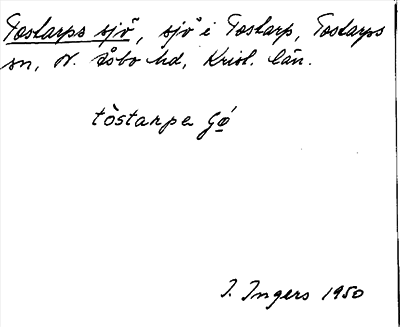 Tostarps sjö, sjö i Tostarp, Tostarps
sn, N. Åsbo hd, Krist. län.
tòstarpa ʃǿ
I. Ingers 1950